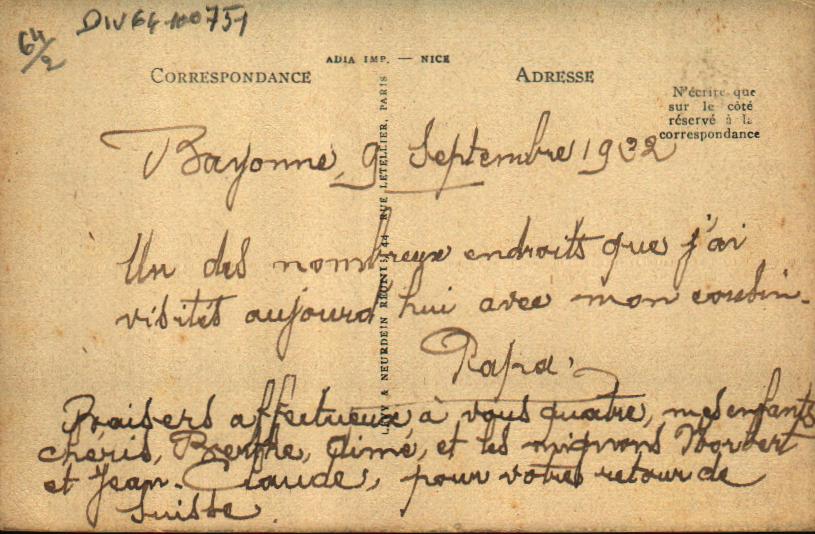 DIV64-100751
64/2
ADIA IMP. — NICE
CORRESPONDANCE
ADRESSE
N'écrire que
sur le côté
réservé à la
correspondance
LEVY & NEURDEIN REUNIS, 44 RUE LETELLIER, PARIS
Bayonne, 9 Septembre 1932
Un des nombreux endroits que j'ai
visités aujourd'hui avec mon cousin.
Papa.
Baisers affectueux, à vous quatre, mes enfants
chéris, Berthe, Aimé, et les mignons Norbert
et Jean-Claude, pour votre retour de
Suisse.